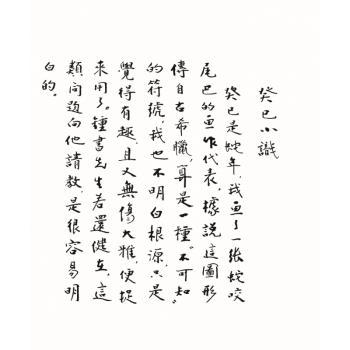 癸巳小識
癸巳是蛇年,我画了一张蛇咬
尾巴的画作代表,據説這圖形
傳自古希臘,算是一種“不可知”
的符號,我也不明白根源,只是
覺得有趣且又無傷大雅,便捉
來用了。鍾書先生若還健在,這
類問題向他請教,是很容易明
白的。